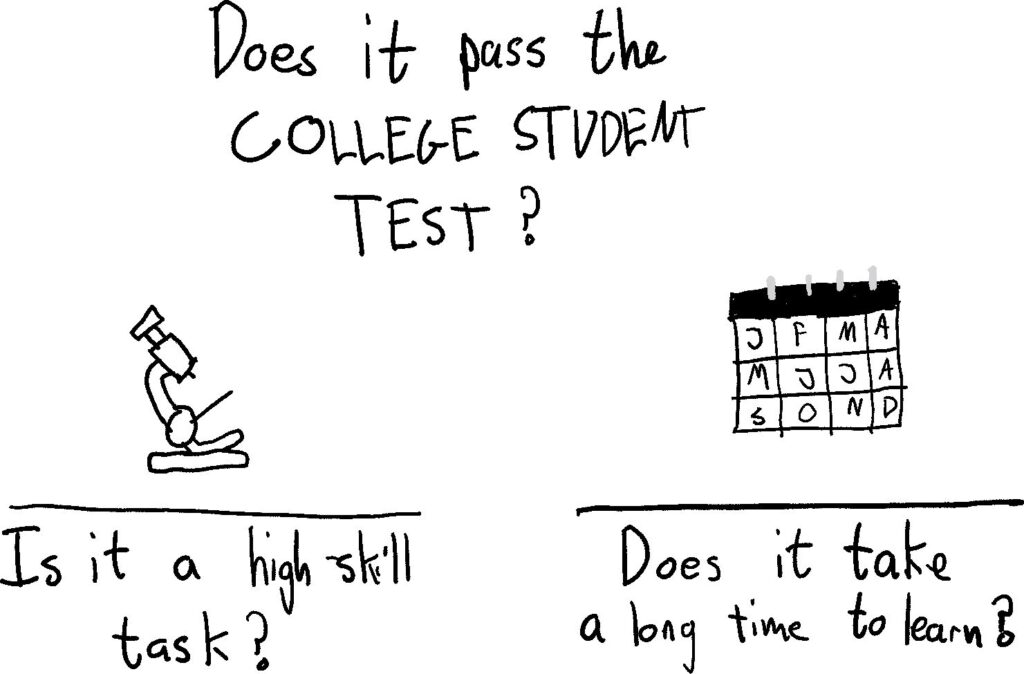 Does it pass the
COLLEGE STUDENT
TEST?
J F M A
M J J A
S O N D
Is it a high-skill
task?
Does it take
a long time to learn?